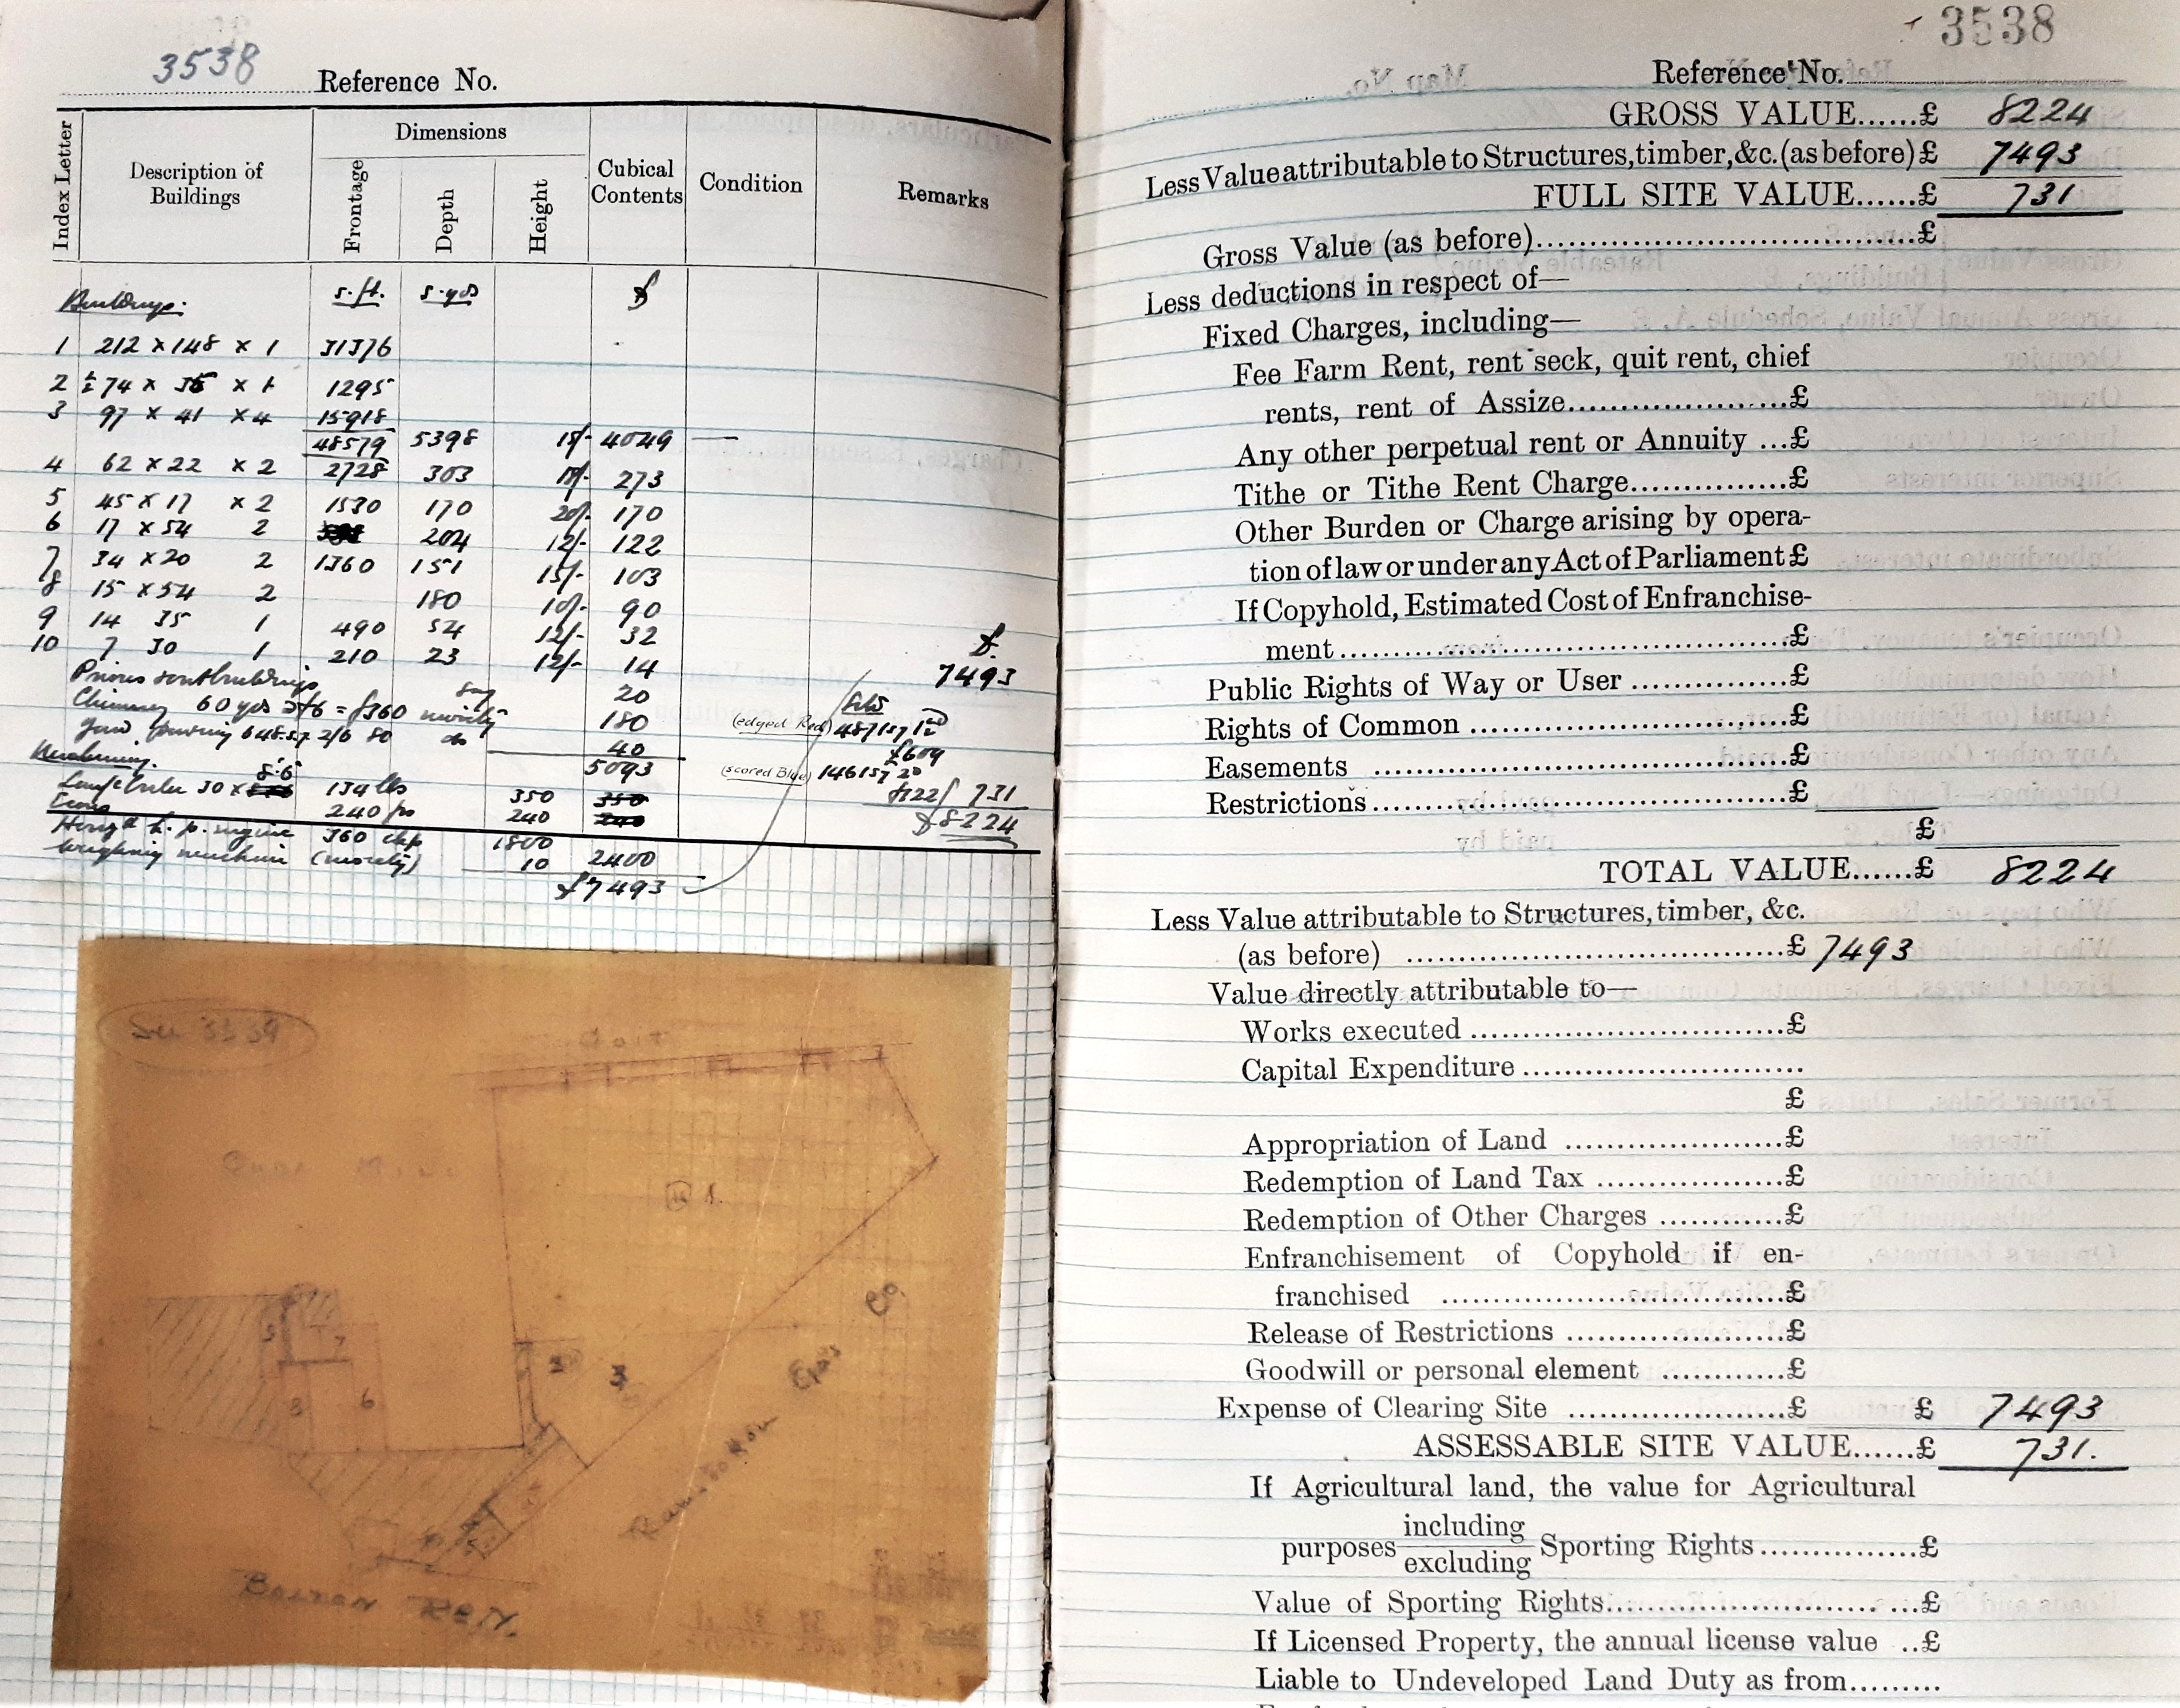 3538 Reference No.
Index Letter
Description of Buildings
Dimensions
Frontage
Depth
Height
Cubical Contents
Condition
Remarks
Buildings: s.ft. s.yds £
1 212 x 148 x 1 31376
2 ½ 74 x 35 x 1 1295
3 97 x 41 x 4 15918
48579 5398 15/- 4049
4 62 x 22 x 2 2728 303 273
5 45 x 17 x 2 1530 170 20/- 170
6 17 x 54 2 204 12/- 122
7 34 x 20 2 1360 151 15/- 103
8 15 x 54 2 180 10/- 90
9 14 35 1 490 54 12/- 32
10 7 30 1 210 23 12/- 14
£
7493
say 20
Chimney 60 yds £6 = £360 moiety 180
Yard paving 648 s.y. 2/6 80 do 40
5093
(edged Red) 4871
£609
(scored Blue) 1461
£122 / 731
£8224
30 x 8.6 134 lbs 350
240 240
h.p. engine 360 1800
Weighing machine (moiety) 10 2400
£7493
See 3539
Goit
1.
5
7
8
6
2
3
Ramsbottom Gas Co.
BOLTON RD N.
3538
Reference No.
GROSS VALUE......£ 8224
Less Value attributable to Structures, timber, &c. (as before) £ 7493
FULL SITE VALUE......£ 731
Gross Value (as before)..........£
Less deductions in respect of—
Fixed Charges, including—
Fee Farm Rent, rent seck, quit rent, chief
rents, rent of Assize..........£
Any other perpetual rent or Annuity ...£
Tithe or Tithe Rent Charge..........£
Other Burden or Charge arising by opera-
tion of law or under any Act of Parliament £
If Copyhold, Estimated Cost of Enfranchise-
ment..........£
Public Rights of Way or User ..........£
Rights of Common ..........£
Easements ..........£
Restrictions..........£
£
TOTAL VALUE......£ 8224
Less Value attributable to Structures, timber, &c.
(as before) ..........£ 7493
Value directly attributable to—
Works executed ..........£
Capital Expenditure ..........
£
Appropriation of Land ..........£
Redemption of Land Tax ..........£
Redemption of Other Charges ..........£
Enfranchisement of Copyhold if en-
franchised ..........£
Release of Restrictions ..........£
Goodwill or personal element ..........£
Expense of Clearing Site ..........£ £ 7493
ASSESSABLE SITE VALUE......£ 731.
If Agricultural land, the value for Agricultural
purposes including
excluding Sporting Rights..........£
Value of Sporting Rights..........£
If Licensed Property, the annual license value ..£
Liable to Undeveloped Land Duty as from.........